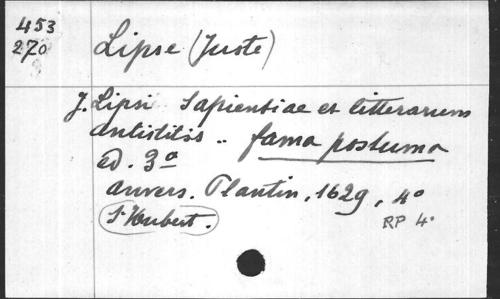 453
270
Lipse (Juste)
J. Lipsi Sapientiae et litterarum
antistitis .. fama postuma
ed. 3a
Anvers. Plantin, 1629, 4o
St Hubert.
RP 4o